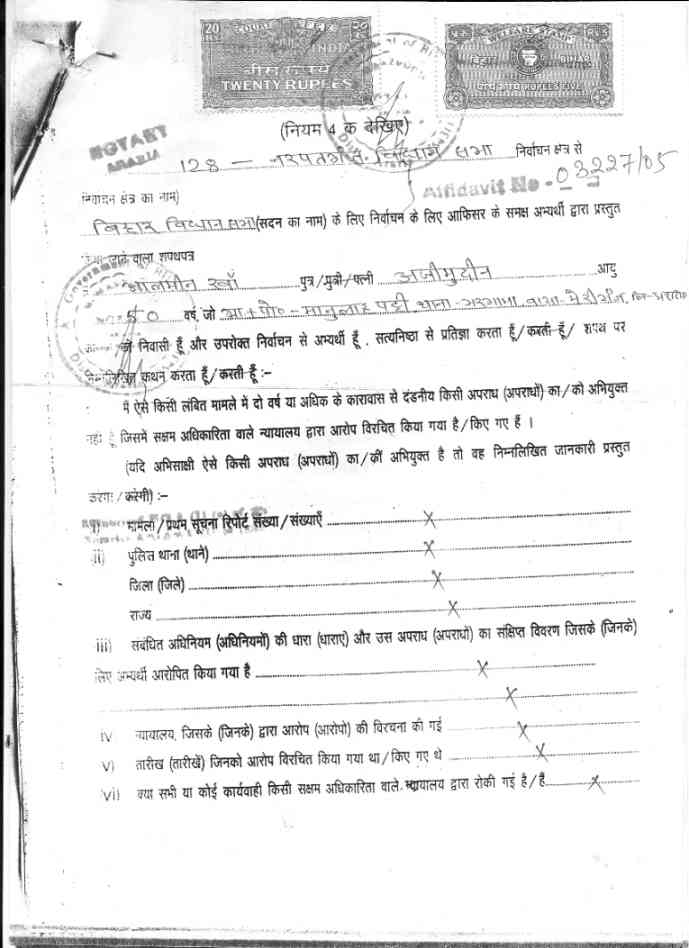 20 COURT FEE
INDIA
बीस रुपये
TWENTY RUPEES
WELFARE STAMP
बिहार BIHAR
पाँच रुपये RUPEES FIVE
(नियम 4 क देखिए)
NOTARY
ARARIA
128 - नरपतगंज विधान सभा निर्वाचन क्षेत्र से
Affidavit No - 03227/05
निर्वाचन क्षेत्र का नाम)
बिहार विधान सभा (सदन का नाम) के लिए निर्वाचन के लिए आफिसर के समक्ष अभ्यर्थी द्वारा प्रस्तुत
जाने वाला शपथपत्र
पुत्र/पुत्री/पत्नी अजीमुद्दीन आयु
50 वर्ष, जो थाना-
निवासी हूँ और उपरोक्त निर्वाचन से अभ्यर्थी हूँ , सत्यनिष्ठा से प्रतिज्ञा करता हूँ/करती हूँ/ शपथ पर
निम्नलिखित कथन करता हूँ/करती हूँ :–
मैं ऐसे किसी लंबित मामले में दो वर्ष या अधिक के कारावास से दंडनीय किसी अपराध (अपराधों) का/की अभियुक्त
नहीं हूँ जिसमें सक्षम अधिकारिता वाले न्यायालय द्वारा आरोप विरचित किया गया है/किए गए हैं ।
(यदि अभिसाक्षी ऐसे किसी अपराध (अपराधों) का/की अभियुक्त है तो वह निम्नलिखित जानकारी प्रस्तुत
करेगा/करेगी) :–
मामला/प्रथम सूचना रिपोर्ट संख्या/संख्याएँ X
ii) पुलिस थाना (थाने) X
जिला (जिले) X
राज्य X
iii) संबंधित अधिनियम (अधिनियमों) की धारा (धाराएं) और उस अपराध (अपराधों) का संक्षिप्त विवरण जिसके (जिनके)
लिए अभ्यर्थी आरोपित किया गया है X
X
iv न्यायालय, जिसके (जिनके) द्वारा आरोप (आरोपो) की विरचना की गई X
v) तारीख (तारीखें) जिनको आरोप विरचित किया गया था/किए गए थे X
vi) क्या सभी या कोई कार्यवाही किसी सक्षम अधिकारिता वाले न्यायालय द्वारा रोकी गई है/हैं X